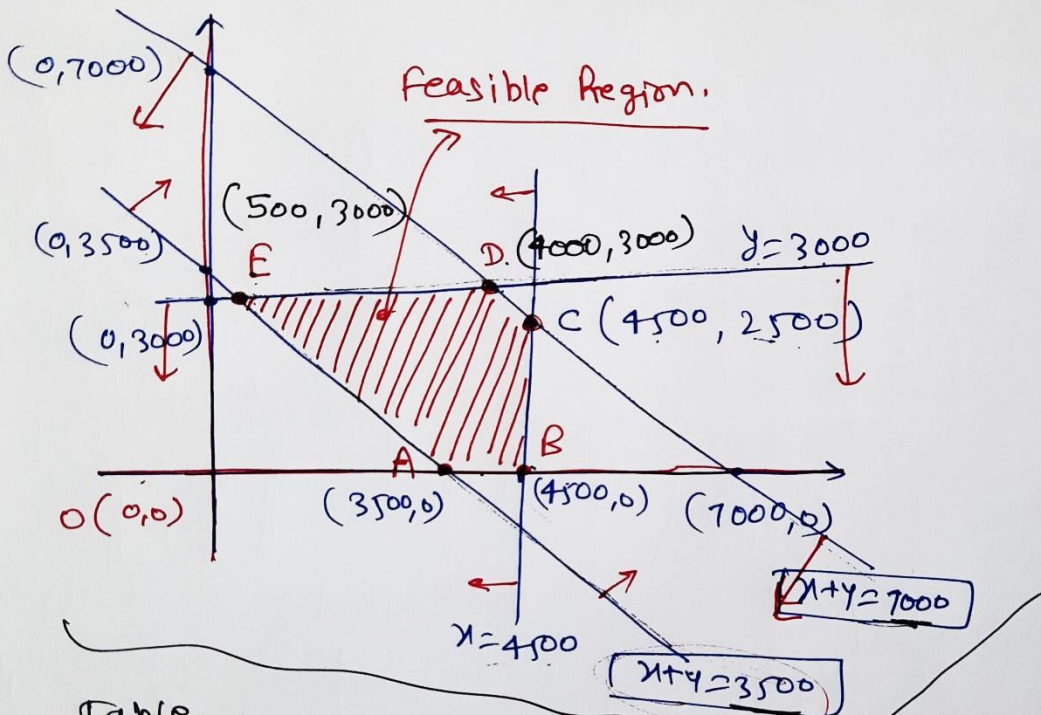 (0,7000)
Feasible Region.
(500, 3000)
(0,3500)
E
D. (4000, 3000)
y=3000
(0,3000)
C (4500, 2500)
A
B
O(0,0)
(3500,0)
(4500,0)
(7000,0)
x+y=7000
x=4500
x+y=3500
Table